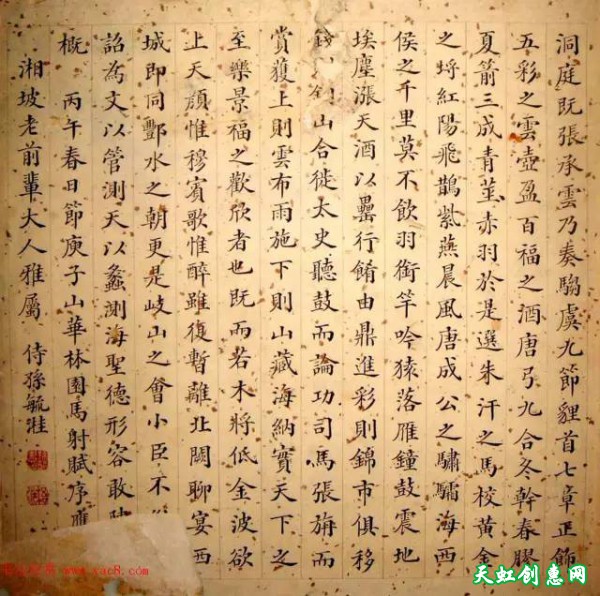 洞庭既張承雲乃奏騶虞九節貍首七章正飾
五彩之雲壺盈百福之酒唐弓九合冬幹春膠
夏箭三成青莖赤羽於是選朱汗之馬校黃金
之埒紅陽飛鵲紫燕晨風唐成公之驌驦海西
侯之千里莫不飲羽銜竿吟猿落雁鐘鼓震地
埃塵漲天酒以罍行餚由鼎進彩則錦市俱移
錢山合徙太史聽鼓而論功司馬張旃而
賞獲上則雲布雨施下則山藏海納實天下之
至樂景福之歡欣者也既而若木將低金波欲
上天顏惟穆賓歌惟醉雖復暫離北闕聊宴西
城即同酆水之朝更是岐山之會小臣不
詔為文以管測天以蠡測海聖德形容敢
概 丙午春日節庚子山華林園馬射賦序應
湘坡老前輩大人雅屬 侍孫毓溎
www.xac8.com
天虹创惠网